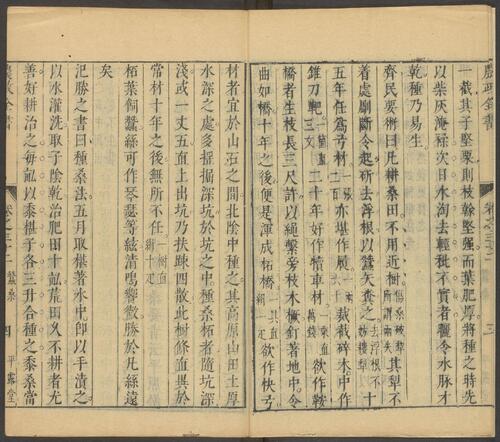 農政全書
卷之三十二
三
一截其子堅栗則枝幹堅强而葉肥厚將種之時先
以柴灰淹揉次日水淘去輕秕不實者曬令水脈才
乾種乃易生
齊民要術曰凡耕桑田不用近樹傷桑破犁所謂兩失其犁不
着處劚斷令起斫去浮根以蠶矢糞之去浮根不妨耬犁十
五年任爲弓材一張二百亦堪作履一兩裁截碎木中作
錐刀靶一箇直三文二十年好作犢車材一乘直萬錢欲作鞍
橋者生枝長三尺許以繩繫旁枝木橛釘著地中令
曲如橋十年之後便是渾成柘橋一具直絹一疋欲作快弓
材者宜於山石之間北陰中種之其高原山田土厚
水深之處多掘深坑於坑之中種桑柘者隨坑深
淺或一丈五直上出坑乃扶疎四散此樹條直異於
常材十年之後無所不任一樹直絹十疋
柘葉飼蠶絲可作琴瑟等絃清鳴響徹勝於凡絲遠
矣
氾勝之書曰種桑法五月取椹著水中卽以手漬之
以水灌洗取子陰乾治肥田十畝荒田久不耕者尤
善好耕治之每畝以黍椹子各三升合種之黍桑當
農政全書
卷之三十二 蠶桑
四
平露堂